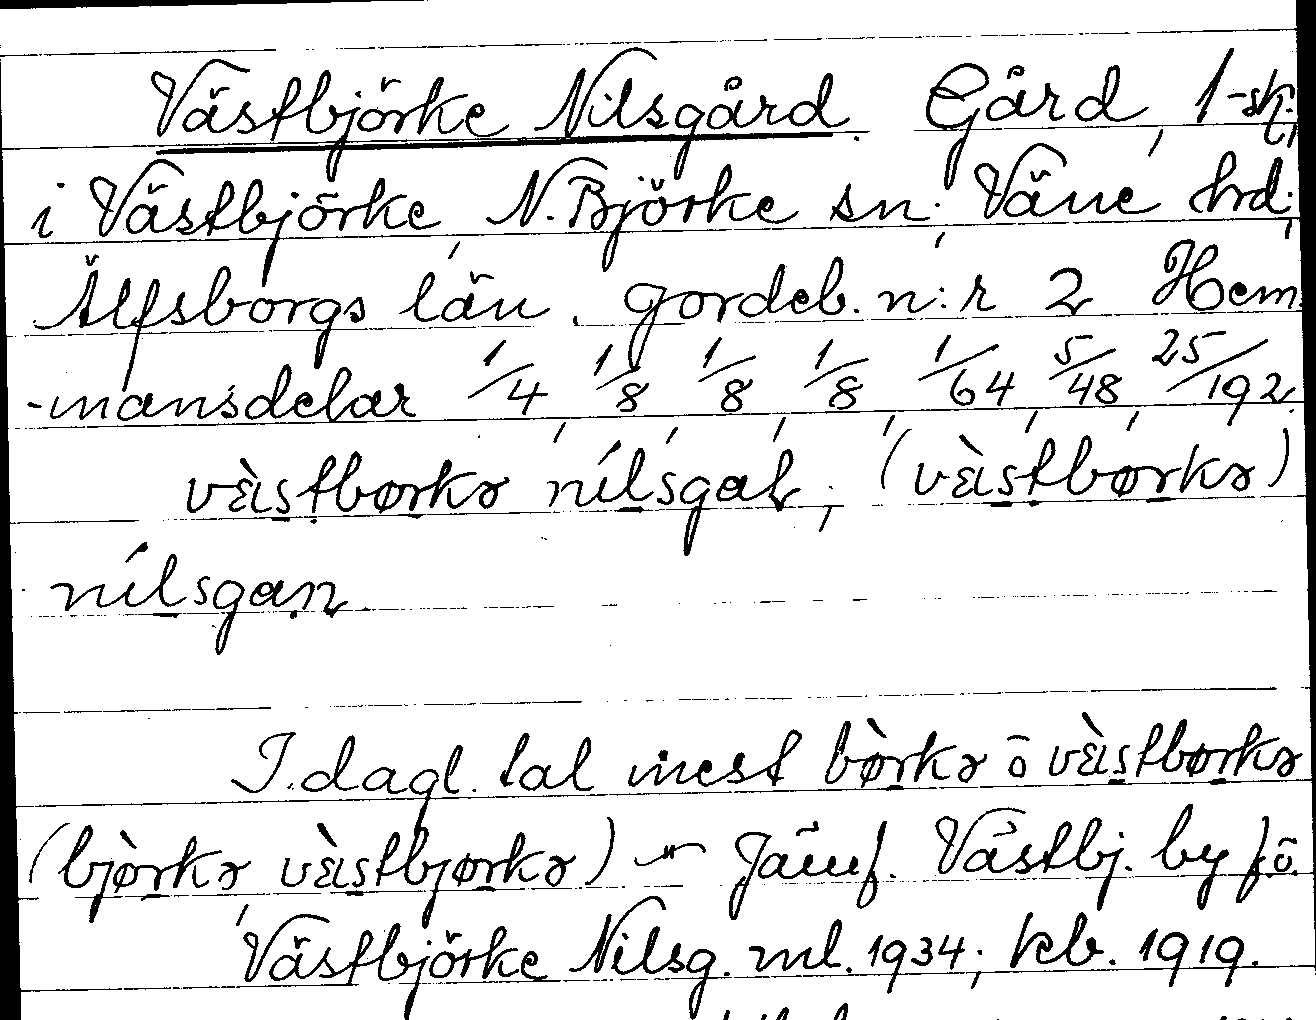 Västbjörke Nilsgård. Gård, 1-sk.,
i Västbjörke, N. Björke sn., Väne hrd.,
Älfsborgs län. Jordeb. n:r 2 Hem-
-mansdelar 1/4, 1/8, 1/8, 1/8, 1/64, 5/48, 25/192.
vὲstbørkɿ nílsgaɽ; (vὲstbørkɿ)
nílsgaɳ
I dagl. tal mest bø̀rkɿ ō vὲstbørkɿ
(bjø̀rkɿ, vὲstbjørkɿ) ~ Jämf. Västbj. by f.ō.
Västbjörke Nilsg. ml. 1934; kcb. 1919.